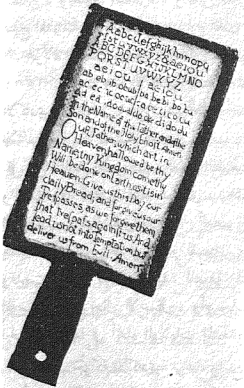 Aabcdefghijklmnopq
rstuvwxyz & aeiou
ABCDEFGHIJKLMNO
PQRSTUVWXYZ
aeiou aeiou
ab eb ib ob ub ba be bi bo bu
ac ec ic oc uc ca ce ci co cu
ad ed id od ud da de di do du
In the Name of the Father and of the
Son and of the Holy Ghost. Amen.
Our Father, which art in
Heaven hallowed be thy
Name; thy Kingdom come, thy
Will be done on Earth as it is in
Heaven. Give us this Day our
daily Bread; and forgive us our
Trespasses as we forgive them
that trespass against us: And
lead us not into Temptation, but
deliver us from Evil. Amen.